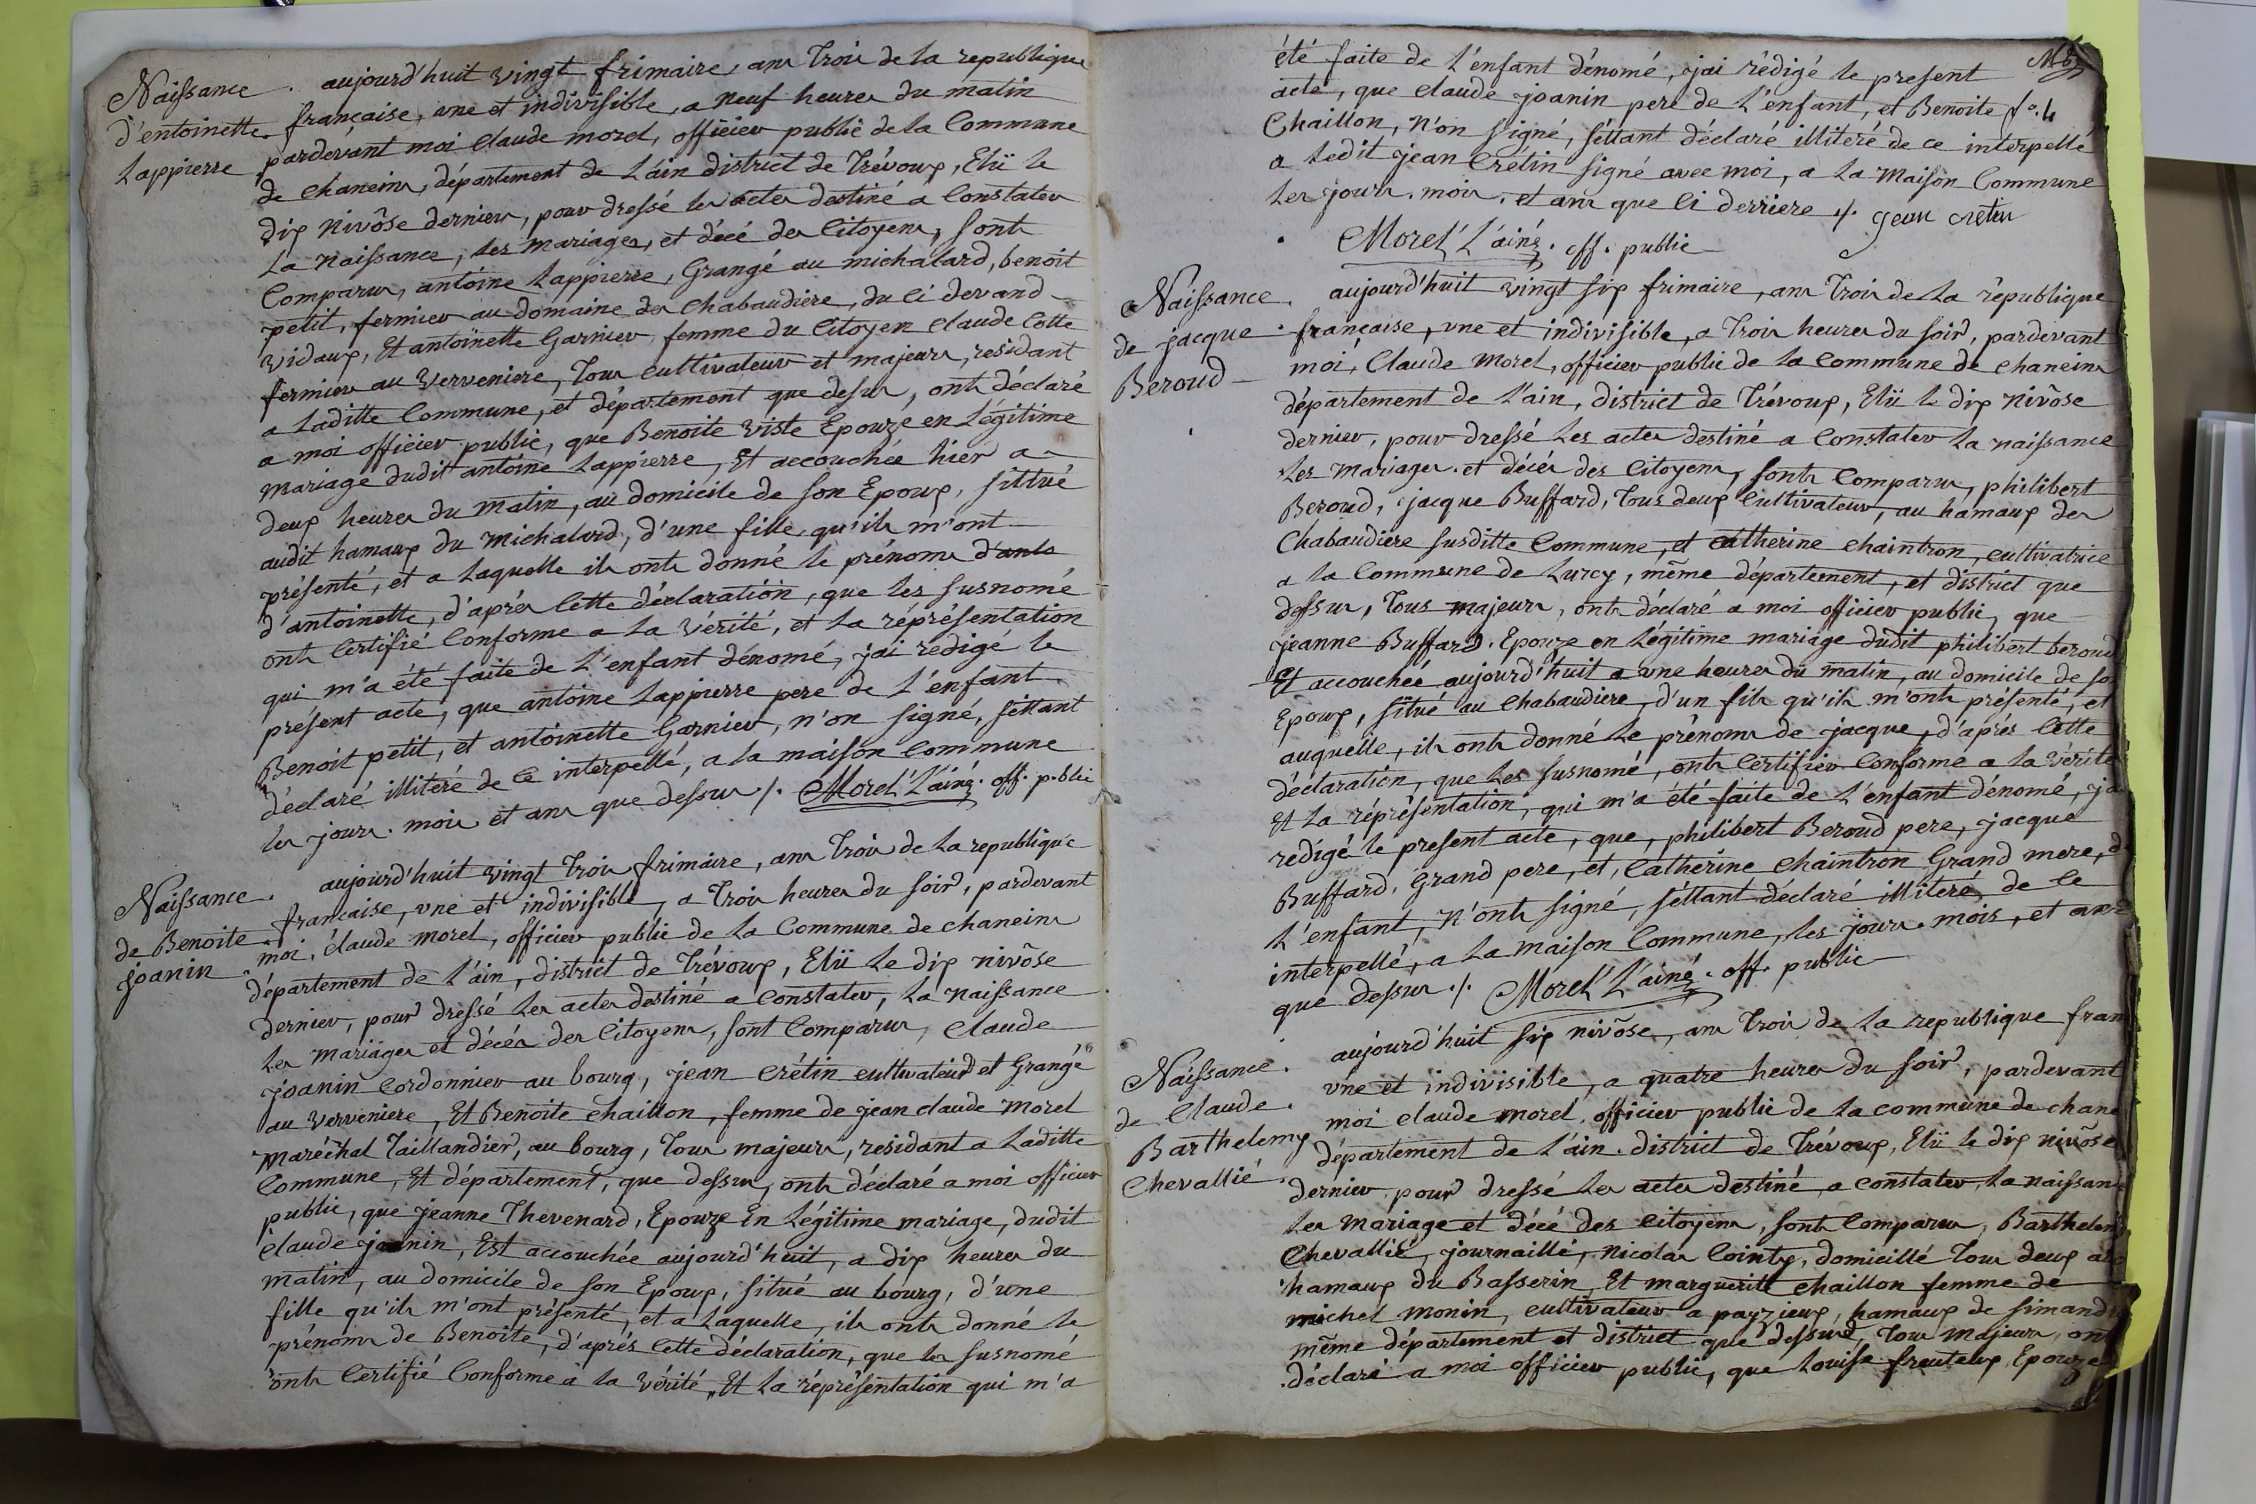 Naissance
d'entoinette
Lappierre
aujourd'huit vingt frimaire, ans Trois de la republique
française, une et indivisible, a neuf heures du matin
pardevant moi Claude morel, officier public de la Commune
de chaneins, département de L'ain district de Trévoux, Elü le
dix nivôse dernier, pour dressé les actes destiné a Constater
La naissance, les mariages, et décé des Citoyens, sonts
Comparus, antoine Lappierre, Grangé au michalard, benoit
petit, fermier au domaine des Chabaudiere, du ci devand
Vidaux, Et antoinette Garnier, femme du Citoyen Claude Cotte
fermier au Verveniere, Tous cultivateur et majeurs, residant
a Laditte Commune, et département que desus, onts déclaré
a moi officier public, que Benoite Viste Epouze en Légitime
mariage dudit antoine Lappierre, Et accouchée hier a
deux heures du matin, au domicile de son Epoux, sittué
audit hamaux du Michalard, d'une fille qu'ils m'ont
présenté, et a Laquelle ils onts donné le prénoms d'anto
d'antoinette, d'après Cette déclaration, que les susnomé
onts Certifié Conforme a la Vérité, et la réprésentation
qui m'a été faite de L'enfant dénomé, jai redigé le
présent acte, que antoine Lappierre pere de L'enfant
Benoit petit, et antoinette Garnier, n'on signé, séttant
déclaré illiteré de Ce interpellé, a la maison Commune
les jours. mois et ans que dessus ./. Morel L'ainé. off. public
Naissance
de Benoite
joanin
aujourd'huit vingt Trois frimaire, ans Trois de La republique
française, une et indivisible, a Trois heures du soird, pardevant
moi, Claude morel, officier public de la Commune de chaneins
département de L'ain, district de Trévoux, Elü Le dix nivôse
dernier, pourd dressé Les actes destiné a Constater, la naissance
Les Mariages et décés des Citoyens, sont Comparus, Claude
joanin Cordonnier au bourg, jean Crétin cultivateurd et Grangé
au Verveniere, Et Benoite Chaillon, femme de jean claude Morel
Maréchal Taillandier, au bourg, Tous majeurs, residant a Laditte
Commune, Et département, que dessus, onts déclaré a moi officier
public, que jeanne Thevenard, Epouze En Légitime mariage, dudit
Claude joanin, Est accouchée aujourd'huit, a dix heures du
matin, au domicile de son Epoux, situé au bourg, d'une
fille qu'ils m'ont présenté, et a Laquelle, ils onts donné le
prénoms de Benoite, d'aprés Cette déclaration, que les susnomé
onts Certifié Conforme à la Vérité, Et la réprésentation qui m'a
été faite de L'enfant dénomé, jai rédigé le present
acte, que Claude joanin pere de L'enfant, et Benoite fo. 4
Chaillon, N'on signé, séttant déclaré illiteré de ce interpellé
a Ledit jean Crétin signé avec moi, a La Maison Commune
Les jours. mois. et ans que Ci derriere ./. jean cretin
Morel L'ainé. off. public
Naissance
de jacque
Beroud
aujourd'huit vingt six frimaire, ans Trois de La république
française, une et indivisible, a Trois heures du soird, pardevant
moi, Claude Morel, officier public de La Commune de chaneins
département de L'ain, district de Trévoux, Elü le dix Nivôse
dernier, pour dressé Les actes destiné a Constater La naissance
Les Mariages. et décés des Citoyens, sonts Comparus, philibert
Beroud, jacque Buffard, Tous deux Cultivateur, au hamaux des
Chabaudiere susditte Commune, et Catherine chaintron, cultivatrice
a la Commune de Lurcy, même département, et district que
dessus, Tous majeurs, onts déclaré a moi officier public, que
jeanne Buffard. Epouze en Légitime mariage dudit philibert beroud
Et accouchée aujourd'huit a une heures du matin, au domicile de so
Epoux, sïtué au Chabaudiere, d'un fils qu'ils m'onts présenté, et
auquelle, ils onts donné Le prénoms de jacque, d'aprés Cette
déclaration, que Les susnomé, onts Certifier Conforme a la Vérité
Et La réprésentation, qui m'a été faite de L'enfant dénomé, ja
redigé le present acte, que, philibert Beroud pere, jacque
Buffard, Grand pere, et, Catherine Chaintron Grand mere, d
L'enfant, N'onts signé, séttant déclaré illiteré, de Ce
interpellé, a La maison Commune, les jours. mois, et ans
que dessus ./. Morel L'ainé. off. public
Naissance
de Claude
Barthelemy
Chevallié
aujourd'huit six nivôse, ans Trois de La republique fran
une et indivisible, a quatre heures du soird, pardevant
moi Claude morel, officier public de La commune de chane
département de L'ain. district de Trévoux, Elü le dix nivôse
dernier, pourd dressé Les actes destiné, a constater, La naissan
Les mariage et décé des Citoyens, sonts Comparus, Barthelem
Chevallié, journaillé, Nicolas Cointy, domicillé Tous deux au
hamaux du Basserin, Et marguerite Chaillon femme de
michel Monin, cultivateur a payzieux, hamaux de simand
même département et district que dessurd, Tous Majeurs, on
déclaré a moi officier public, que Louise freuteux Epouze